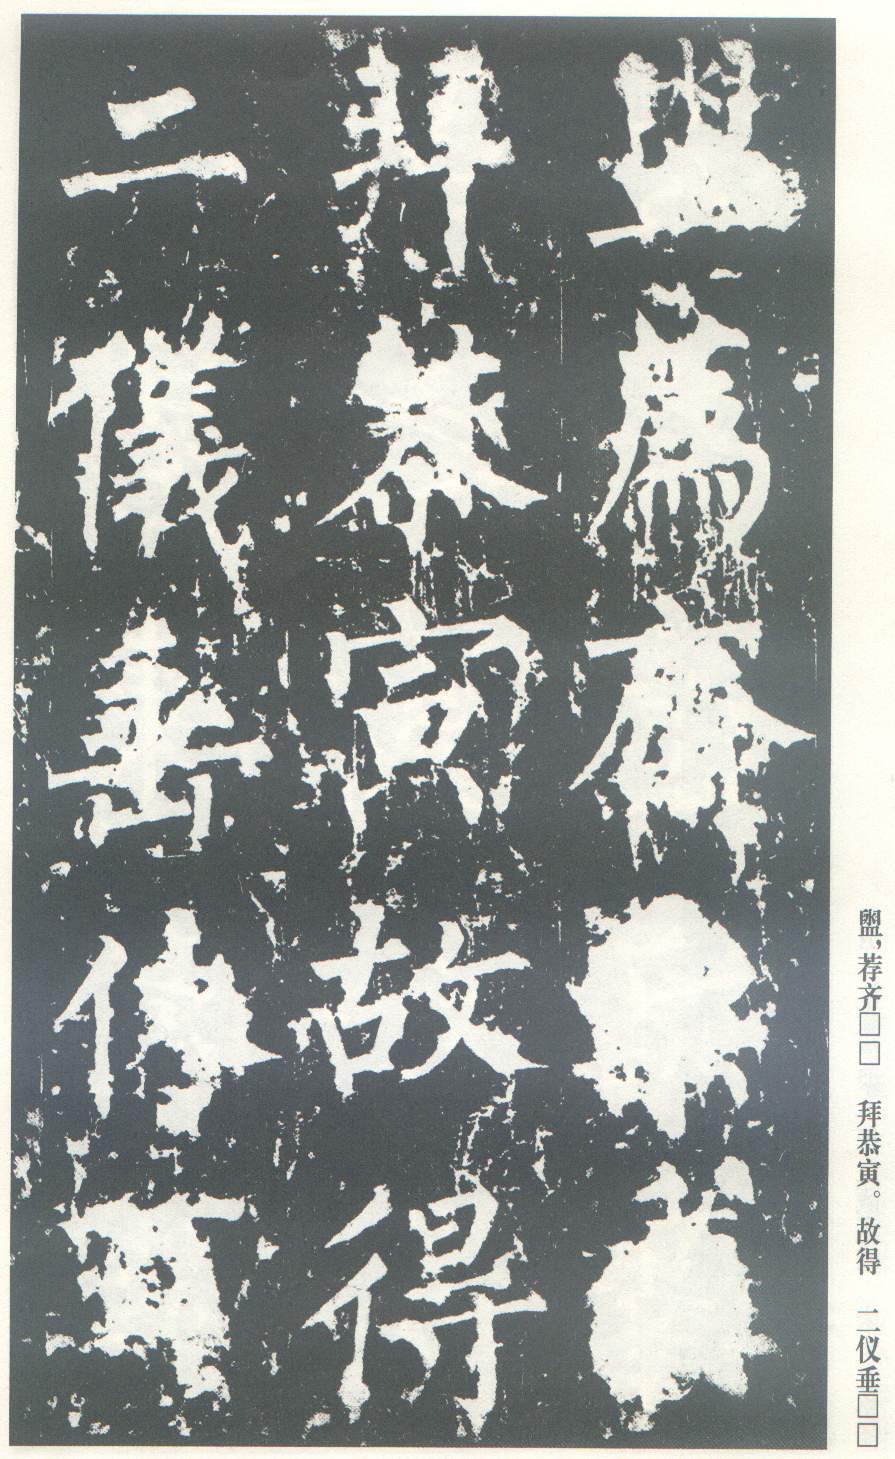 盥薦齊
拜恭寅故得
二儀垂
盥,荐齐□□　拜恭寅。故得　二仪垂□□